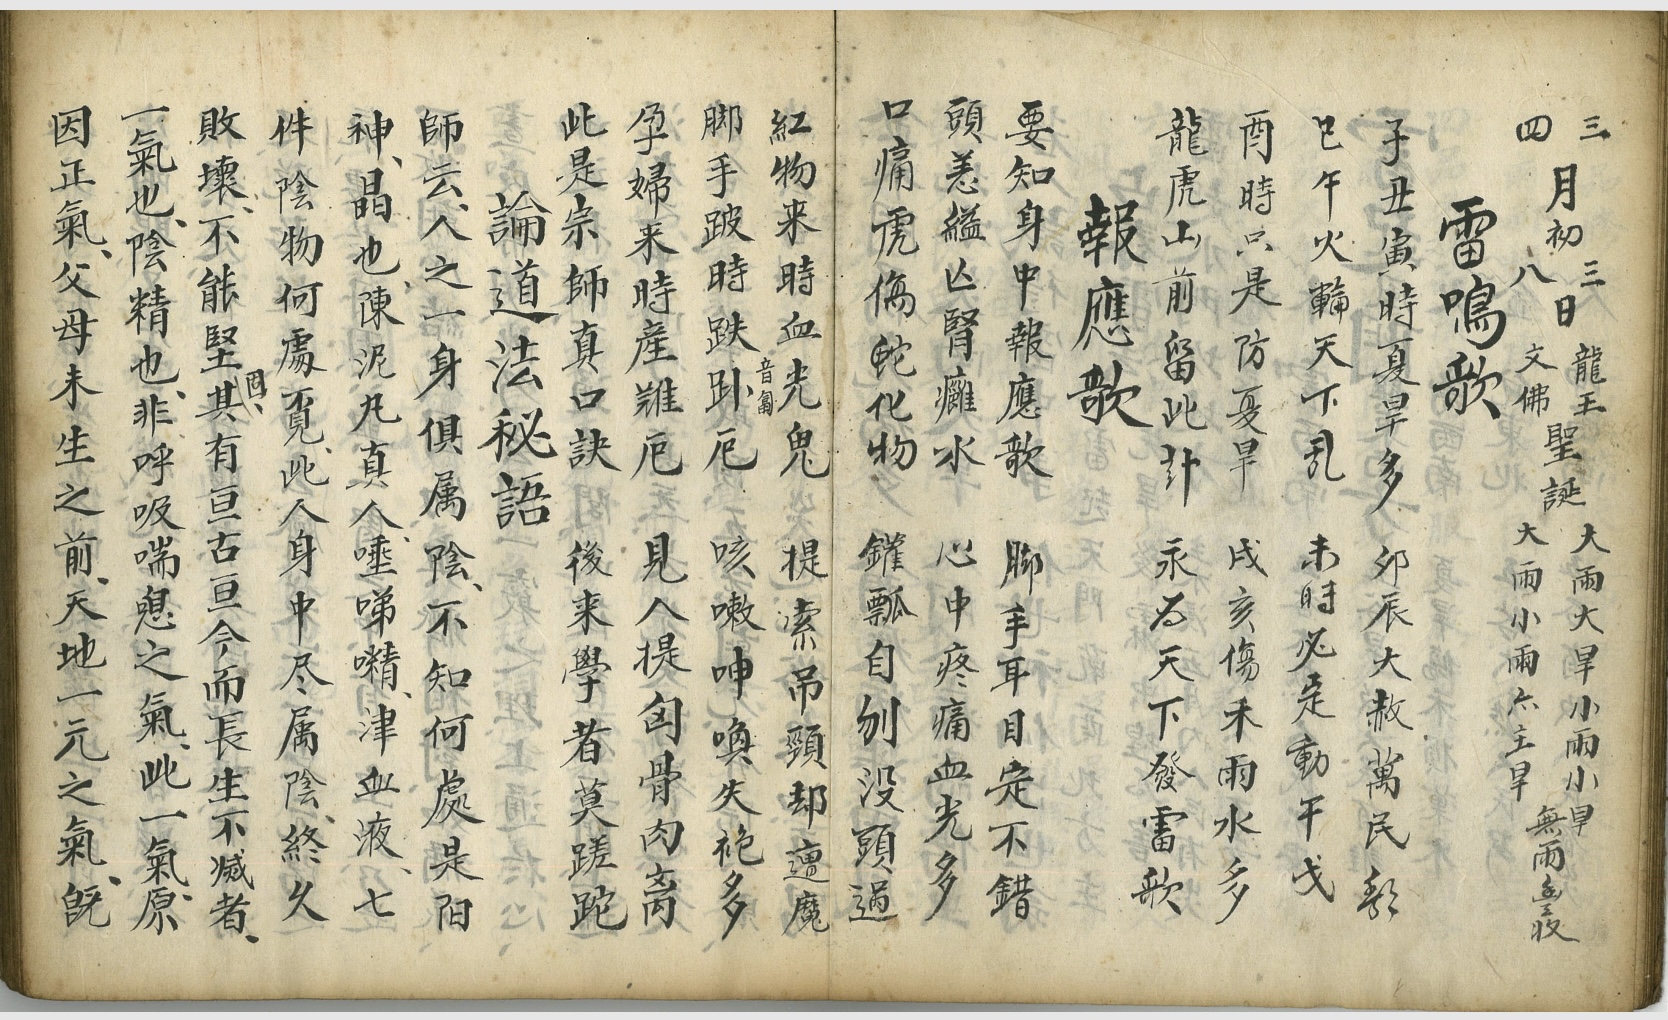 三月初三日 龍王聖誕 大雨大旱小雨小旱
四月初八日 文佛聖誕 大雨小雨六主旱 無雨豊收
雷鳴歌
子丑寅時夏旱多 卯辰大赦萬民
巳午火輪天下乱 未時必定動干戈
酉時只是防憂旱 戌亥傷禾雨水多
龍虎山前留此計 永为天下發雷歌
報應歌
要知身中報應歌 脚手耳目定不錯
頭恙縊亡腎癰水 心中疼痛血光多
口痛虎傷蛇化物 鑵瓢自刎没頭過
紅物来時血光鬼 提索吊頸却邅魔
脚手跛時跌卧厄 咳嗽呻喚失袍多
孕婦来時産難厄 見人提囪骨肉离
此是宗師真口訣 後来學者莫蹉跎
論道法秘語
師云、人之一身俱属陰、不知何處是阳
神、晶也、陳泥丸真人、唾啼嘳、津血液、七
件陰物何處覔、此人身中尽属陰、終久
敗壞、不能堅其固、有亘古亘今而長生不滅者、
一氣也、陰精也、非呼吸喘息之氣、此一氣、原
因正氣、父母未生之前、天地一元之氣、旣